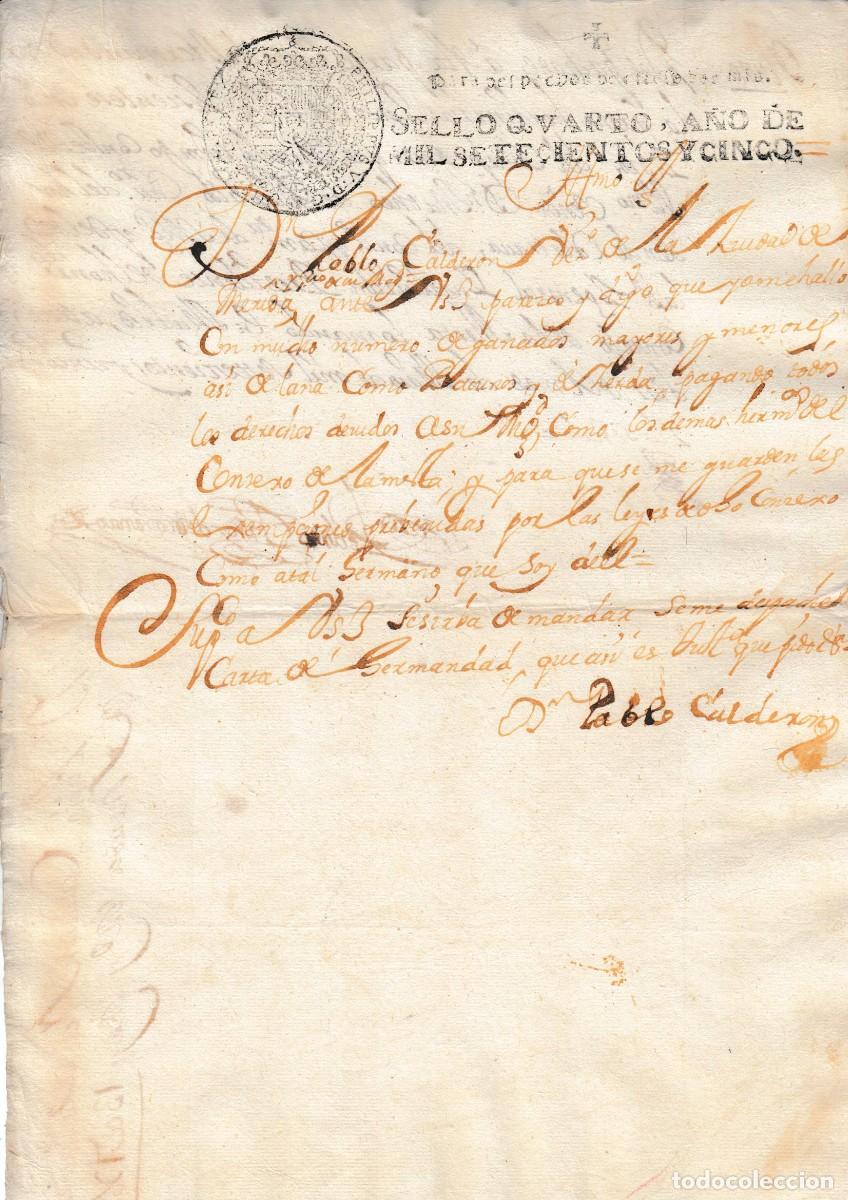 Para despachos de oficio dos mrs.
SELLO QVARTO, AÑO DE
MIL SETECIENTOS Y CINCO.
Illmo Sr
Dn Pablo Calderon Vezo de la Ziudad de
Merida ante VS3 parezco y digo que yo me hallo
Con mucho numero de ganados mayores y menores
asi de lana Como Bacunos y de sherda pagando todos
los derechos devidos a su Magd Como los demas hermos del
Conzejo de la mesta, y para que se me guarden las
por las leyes de dho Conzejo
Como a tal hermano que soy del =
Suppco a VS3 se sirba de mandar se me despache
Carta de hermandad, que asi es Justa que pido &
Dn Pablo Calderon
todocoleccion